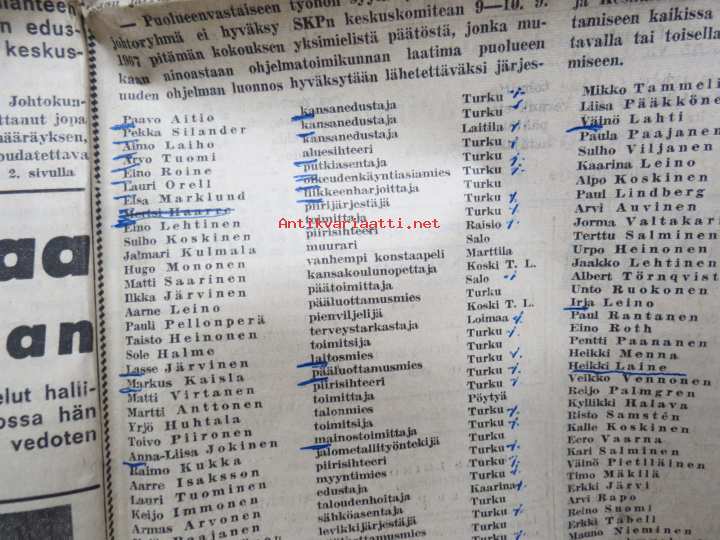 anteen
n edus-
keskus-
Johtokun-
ttanut jopa
määräyksen,
oudatettava
2. sivulla
aa
an
elut halii-
ossa hän
vedoten
— Puolueenvastaiseen työhön
johtoryhmä ei hyväksy SKPn keskuskomitean 9—10. 9.
1967 pitämän kokouksen yksimielistä päätöstä, jonka mu-
kaan ainoastaan ohjelmatoimikunnan laatima puolueen
uuden ohjelman luonnos hyväksytään lähetettäväksi järjes-
tamiseen kaikissa
tavalla tai toisella
miseen.
Paavo Aitio
Pekka Silander
Aimo Laiho
Arvo Tuomi
Eino Roine
Lauri Orell
Elsa Marklund
Eino Lehtinen
Sulho Koskinen
Jalmari Kulmala
Hugo Mononen
Matti Saarinen
Ilkka Järvinen
Aarne Leino
Pauli Pellonperä
Taisto Heinonen
Sole Halme
Lasse Järvinen
Markus Kaisla
Matti Virtanen
Martti Anttonen
Yrjö Huhtala
Toivo Piironen
Anna-Liisa Jokinen
Raimo Kukka
Aarre Isaksson
Lauri Tuominen
Keijo Immonen
Armas Arvonen
kansanedustaja
kansanedustaja
kansanedustaja
aluesihteeri
putkiasentaja
oikeudenkäyntiasiamies
liikkeenharjoittaja
piirijärjestäjä
toimittaja
piirisihteeri
muurari
vanhempi konstaapeli
kansakoulunopettaja
päätoimittaja
pääluottamusmies
pienviljelijä
terveystarkastaja
toimitsija
laitosmies
pääluottamusmies
piirisihteeri
toimittaja
talonmies
toimitsija
mainostoimittaja
jalometallityöntekijä
piirisihteeri
myyntimies
edustaja
taloudenhoitaja
sähköasentaja
levikkijärjestäjä
Turku
Turku
Laitila
Turku
Turku
Turku
Turku
Turku
Turku
Raisio
Salo
Marttila
Koski T. L.
Salo
Turku
Koski T. L.
Loimaa
Turku
Turku
Turku
Turku
Pöytyä
Turku
Turku
Turku
Turku
Turku
Turku
Kaarina
Turku
Turku
Mikko Tammeli
Liisa Pääkköne
Väinö Lahti
Paula Paajanen
Sulho Viljanen
Kaarina Leino
Alpo Koskinen
Paul Lindberg
Arvi Auvinen
Jorma Valtakari
Terttu Salminen
Urpo Heinonen
Jaakko Lehtinen
Albert Törnqvist
Unto Ruokonen
Irja Leino
Paul Rantanen
Eino Roth
Pentti Paananen
Heikki Menna
Heikki Laine
Veikko Vennonen
Reijo Palmgren
Kyllikki Halava
Risto Samstén
Kalle Koskinen
Eero Vaarna
Kari Salminen
Väinö Pietiläinen
Timo Mäkilä
Erkki Järvi
Arvi Rapo
Reino Suomi
Erkki Tabell
Mauno Nieminen
Antikvariaatti.net